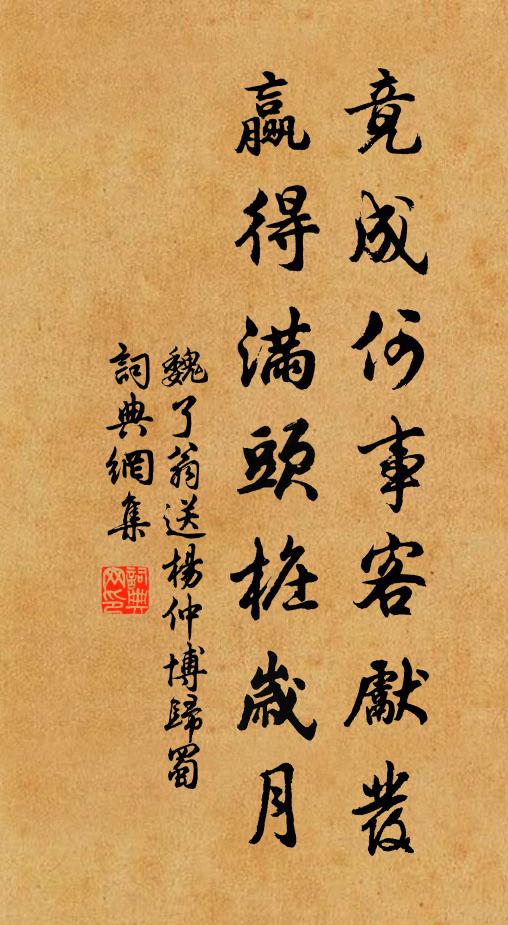 竟成何事客獻發
贏得滿頭樁歲月
魏了翁送楊仲博歸蜀
詞典網集
詞典網印